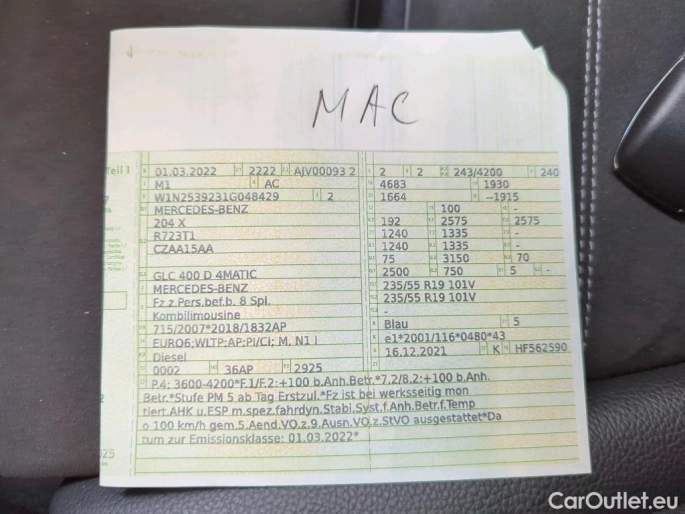 MAC
Teil 1
01.03.2022 2222 AJV00093 2
M1 AC
W1N2539231G048429 2
MERCEDES-BENZ
204 X
R723T1
CZAA15AA
GLC 400 D 4MATIC
MERCEDES-BENZ
Fz.z.Pers.bef.b. 8 Spl.
Kombilimousine
715/2007*2018/1832AP
EURO6;WLTP;AP;PI/CI; M, N1 I
Diesel
0002 36AP 2925
2 2 243/4200 240
4683 1930
1664 --1915
100 -
192 2575 2575
1240 1335 -
1240 1335 -
75 3150 70
2500 750 5 -
235/55 R19 101V
235/55 R19 101V
-
Blau 5
e1*2001/116*0480*43
16.12.2021 K HF562590
P.4: 3600-4200*F.1/F.2:+100 b.Anh.Betr.*7.2/8.2:+100 b.Anh.
Betr.*Stufe PM 5 ab Tag Erstzul.*Fz ist bei werksseitig mon
tiert.AHK u.ESP m.spez.fahrdyn.Stabi.Syst.f.Anh.Betr.f.Temp
o 100 km/h gem.5.Aend.VO.z.9.Ausn.VO.z.StVO ausgestattet*Da
tum zur Emissionsklasse: 01.03.2022*
CarOutlet.eu